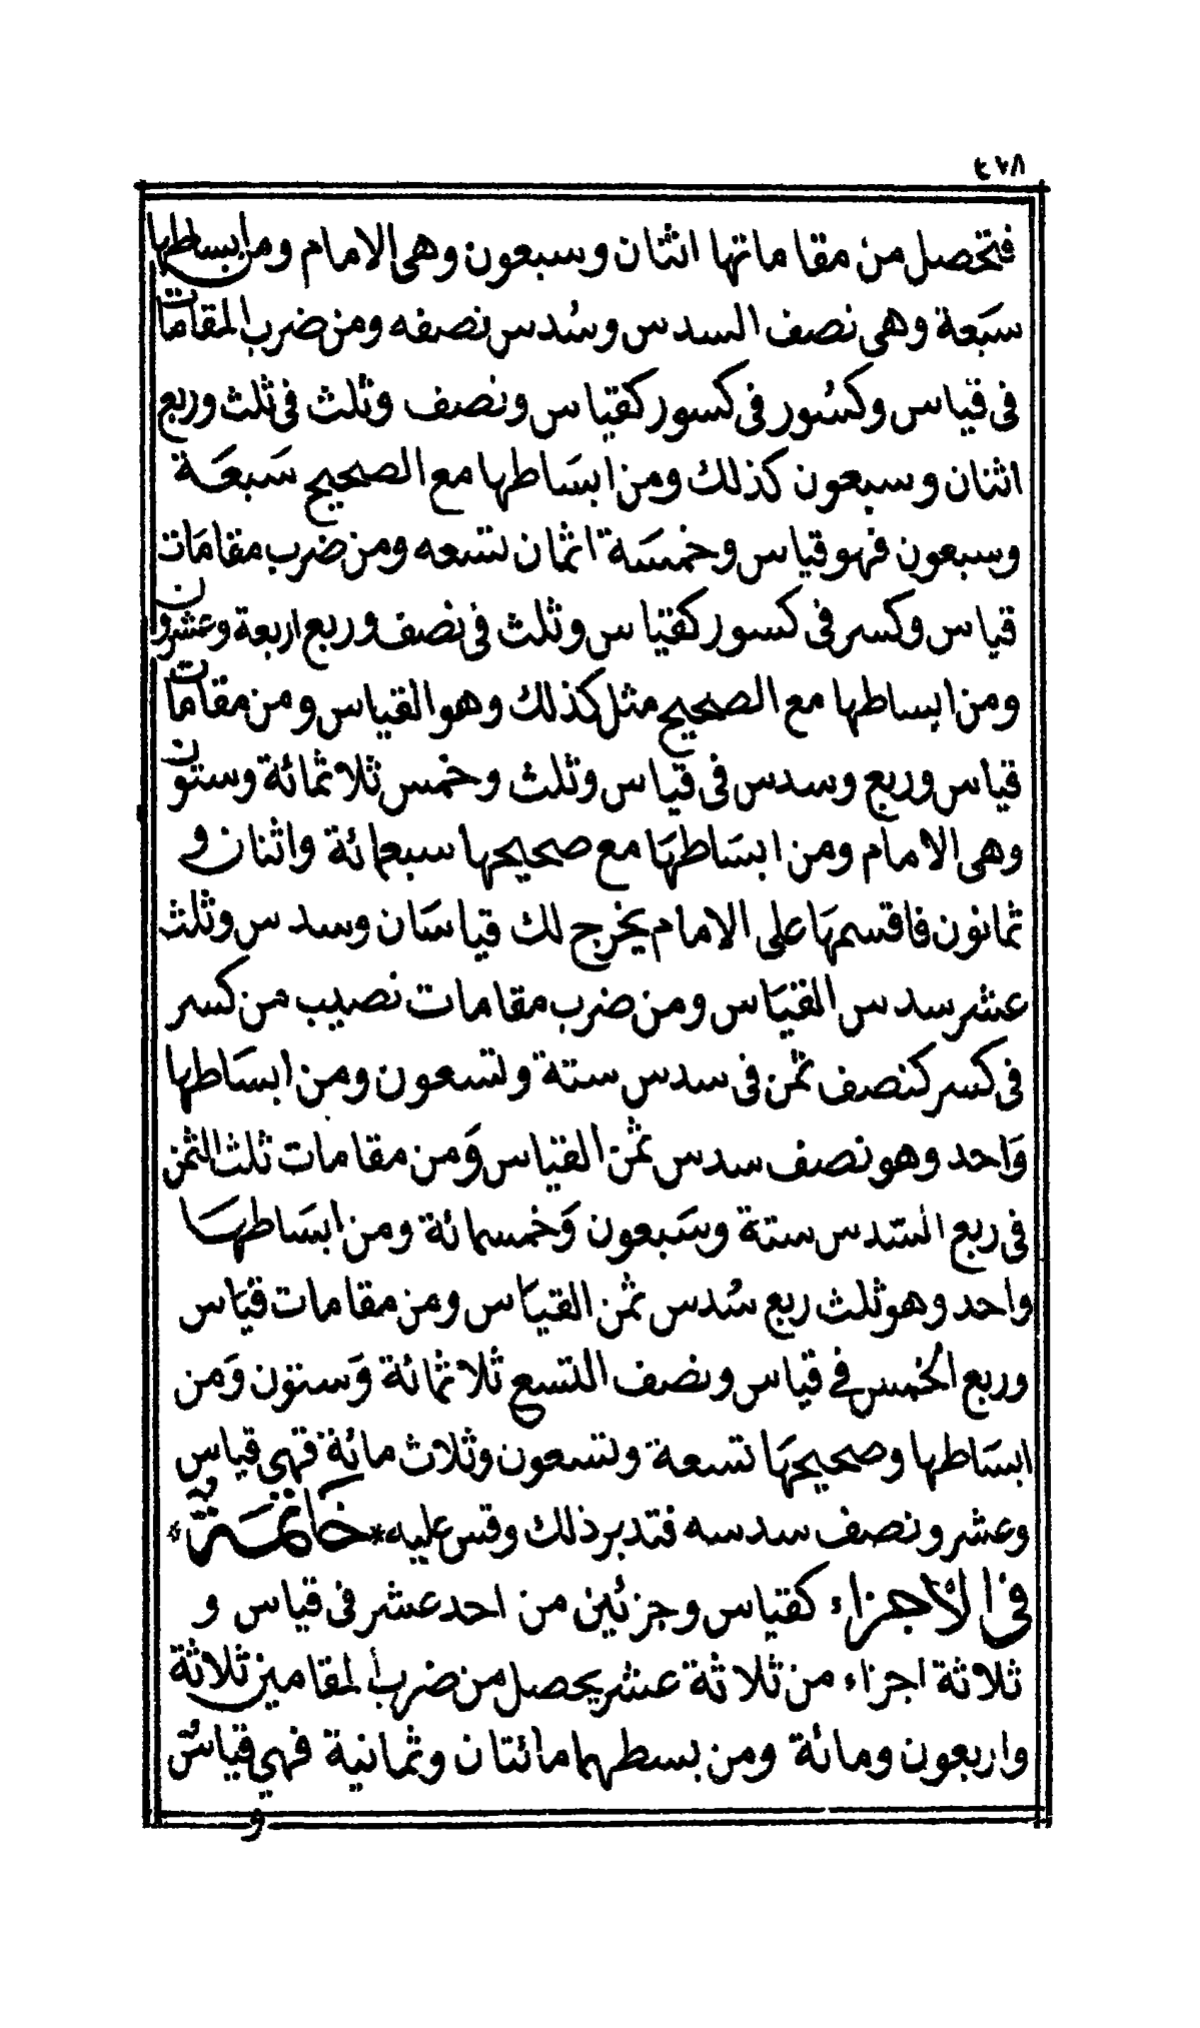 ٤٧٨
فتحصل من مقاماتها اثنان وسبعون وهى الامام ومن ابساطها
سبعة وهى نصف السدس وسُدس نصفه ومن ضرب المقامات
فى قياس وكسُور فى كسور كقياس ونصف وثلث فى ثلث وربع
اثنان وسبعون كذلك ومن ابسَاطها مع الصحيح سَبعَة
وسبعون فهو قياس وخمسَة اثمان تسعه ومن ضرب مقامَات
قياس وكسر فى كسور كقياس وثلث فى نصف وربع اربعة وعشرون
ومن ابساطها مع الصحيح مثل كذلك وهو القياس ومن مقامات
قياس وربع وسدس فى قياس وثلث وخمس ثلاثمائة وستون
وهى الامام ومن ابسَاطهَا مع صحيحها سبعمائة واثنان و
ثمانون فاقسمهَا على الامام يخرج لك قياسَان وسدس وثلث
عشر سدس القيَاس ومن ضرب مقامات نصيب من كسر
فى كسر كنصف ثمن فى سدس ستة وتسعون ومن ابسَاطها
وَاحد وهو نصف سدس ثمن القياس وَمن مقامات ثلث الثمن
فى ربع السّدس ستة وسَبعون وَخمسمائة ومن ابسَاطهَا
واحد وهو ثلث ربع سُدس ثمن القيَاس ومن مقامات قيَاس
وربع الخمس فى قياس ونصف التسع ثلاثمائة وَستون وَمن
ابسَاطها وصحيحهَا تسعة وتسعون وثلاث مائة فهى قياس
وعشر ونصف سدسه فتدبر ذلك وقس عليه * خَاتمَة *
فى الأجزاء كقياس وجزئين من احد عشر فى قياس و
ثلاثة اجزاء من ثلاثة عشر يحصل من ضرب المقامين ثلاثة
واربعون ومائة ومن بسطهما مائتان وثمانية فهى قياسٌ
و